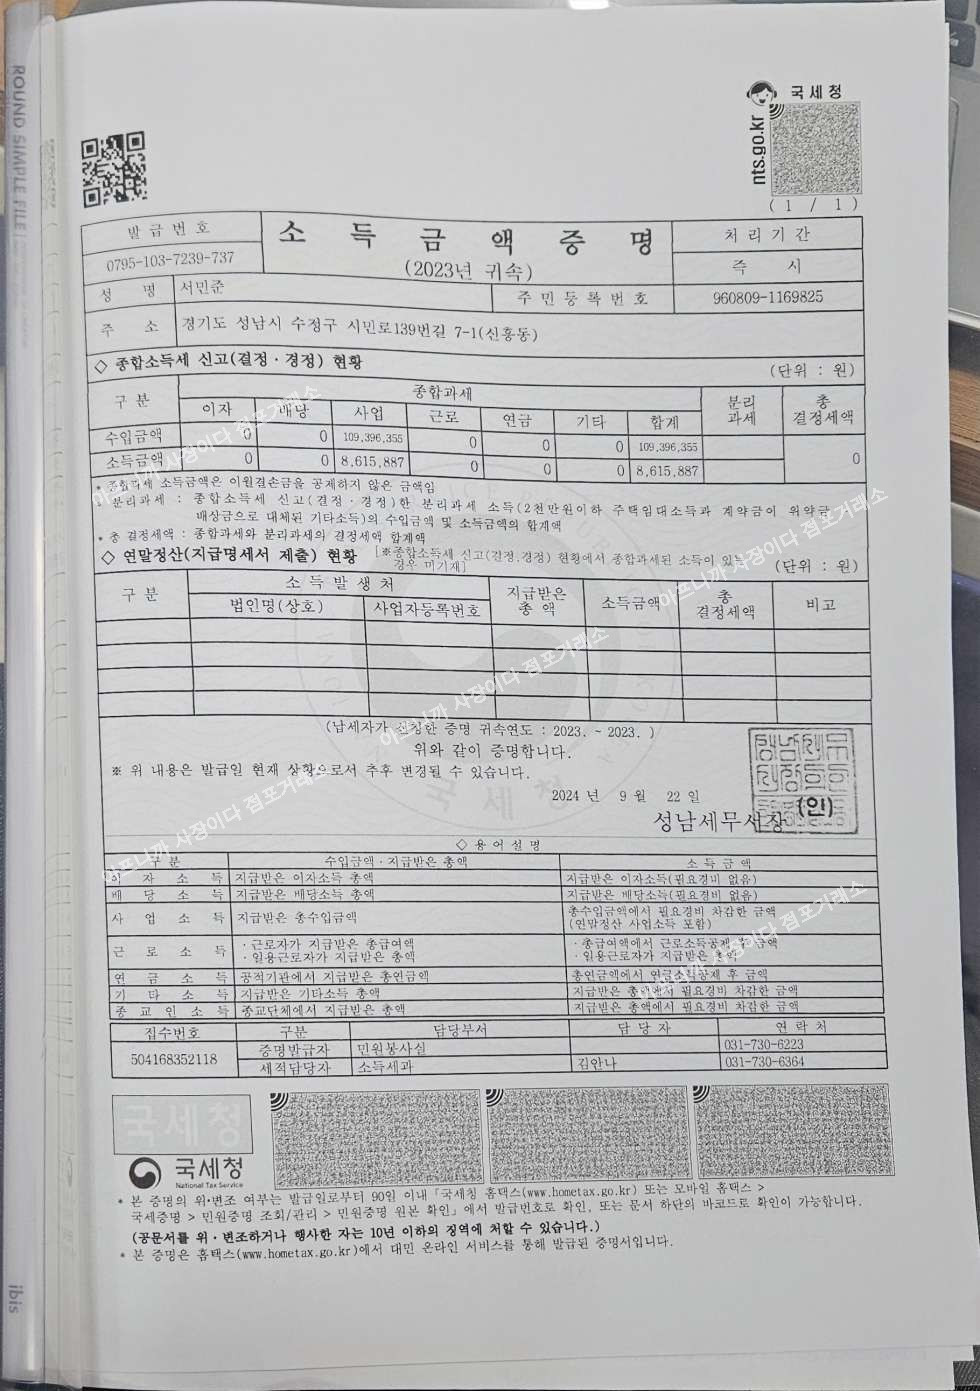 ROUND SIMPLE FILE
국세청
nts.go.kr
( 1 / 1 )
발급번호
0795-103-7239-737
소 득 금 액 증 명
(2023년 귀속)
처 리 기 간
즉 시
성 명 서민준
주 민 등 록 번 호 960809-1169825
주 소 경기도 성남시 수정구 시민로139번길 7-1(신흥동)
◇ 종합소득세 신고(결정·경정) 현황 (단위 : 원)
구 분 종합과세 분리과세 총결정세액
이자 배당 사업 근로 연금 기타 합계
수입금액 0 0 109,396,355 0 0 0 109,396,355
소득금액 0 0 8,615,887 0 0 0 8,615,887 0
* 종합과세 소득금액은 이월결손금을 공제하지 않은 금액임
* 분리과세 : 종합소득세 신고(결정·경정)한 분리과세 소득(2천만원이하 주택임대소득과 계약금이 위약금
배상금으로 대체된 기타소득)의 수입금액 및 소득금액의 합계액
* 총 결정세액 : 종합과세와 분리과세의 결정세액 합계액
◇ 연말정산(지급명세서 제출) 현황 [※종합소득세 신고(결정.경정) 현황에서 종합과세된 소득이 있는 경우 미기재] (단위 : 원)
구 분 소 득 발 생 처 지급받은 총 액 소득금액 총 결정세액 비고
법인명(상호) 사업자등록번호
(납세자가 신청한 증명 귀속연도 : 2023. ~ 2023. )
위와 같이 증명합니다.
※ 위 내용은 발급일 현재 상황으로서 추후 변경될 수 있습니다.
2024 년 9 월 22 일
성남세무서장 (인)
국세청
◇ 용 어 설 명
구 분 수입금액·지급받은 총액 소 득 금 액
이 자 소 득 지급받은 이자소득 총액 지급받은 이자소득(필요경비 없음)
배 당 소 득 지급받은 배당소득 총액 지급받은 배당소득(필요경비 없음)
사 업 소 득 지급받은 총수입금액 총수입금액에서 필요경비 차감한 금액
(연말정산 사업소득 포함)
근 로 소 득 ·근로자가 지급받은 총급여액 ·총급여액에서 근로소득공제 후 금액
·일용근로자가 지급받은 총액 ·일용근로자가 지급받은 총액
연 금 소 득 공적기관에서 지급받은 총연금액 총연금액에서 연금소득공제 후 금액
기 타 소 득 지급받은 기타소득 총액 지급받은 총액에서 필요경비 차감한 금액
종 교 인 소 득 종교단체에서 지급받은 총액 지급받은 총액에서 필요경비 차감한 금액
접수번호 구분 담당부서 담 당 자 연 락 처
504168352118 증명발급자 민원봉사실 031-730-6223
세적담당자 소득세과 김안나 031-730-6364
국세청
국세청
National Tax Service
* 본 증명의 위·변조 여부는 발급일로부터 90일 이내「국세청 홈택스(www.hometax.go.kr) 또는 모바일 홈택스 >
국세증명 > 민원증명 조회/관리 > 민원증명 원본 확인」에서 발급번호로 확인, 또는 문서 하단의 바코드로 확인이 가능합니다.
(공문서를 위·변조하거나 행사한 자는 10년 이하의 징역에 처할 수 있습니다.)
* 본 증명은 홈택스(www.hometax.go.kr)에서 대민 온라인 서비스를 통해 발급된 증명서입니다.
ibis
아프니까 사장이다 점포거래소
아프니까 사장이다 점포거래소
아프니까 사장이다 점포거래소
아프니까 사장이다 점포거래소
아프니까 사장이다 점포거래소